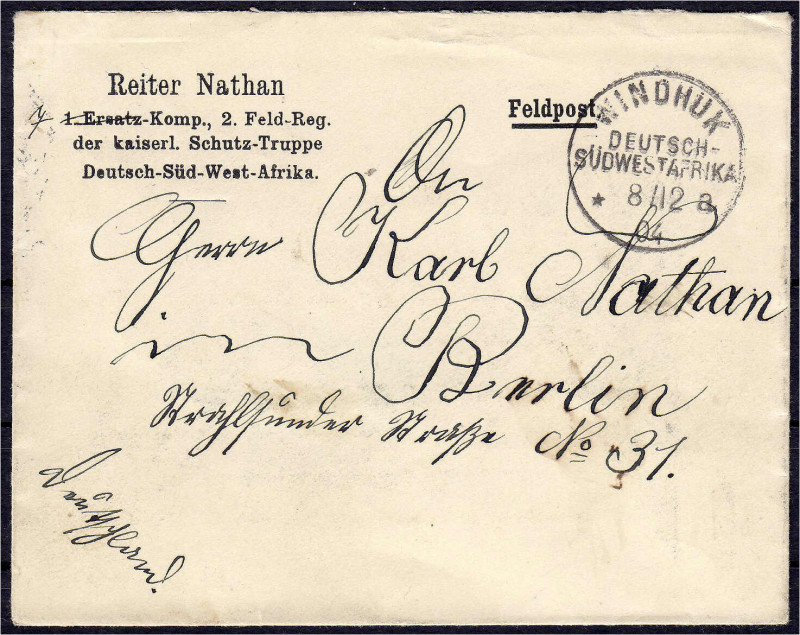 Reiter Nathan
7 1. Ersatz-Komp., 2. Feld-Reg.
der kaiserl. Schutz-Truppe
Deutsch-Süd-West-Afrika.
Feldpost
WINDHUK
DEUTSCH-
SÜDWESTAFRIKA
* 8/12 a
04
An
Herrn Karl Nathan
in Berlin
Strahlsunder Straße No 31.
Deutschland.